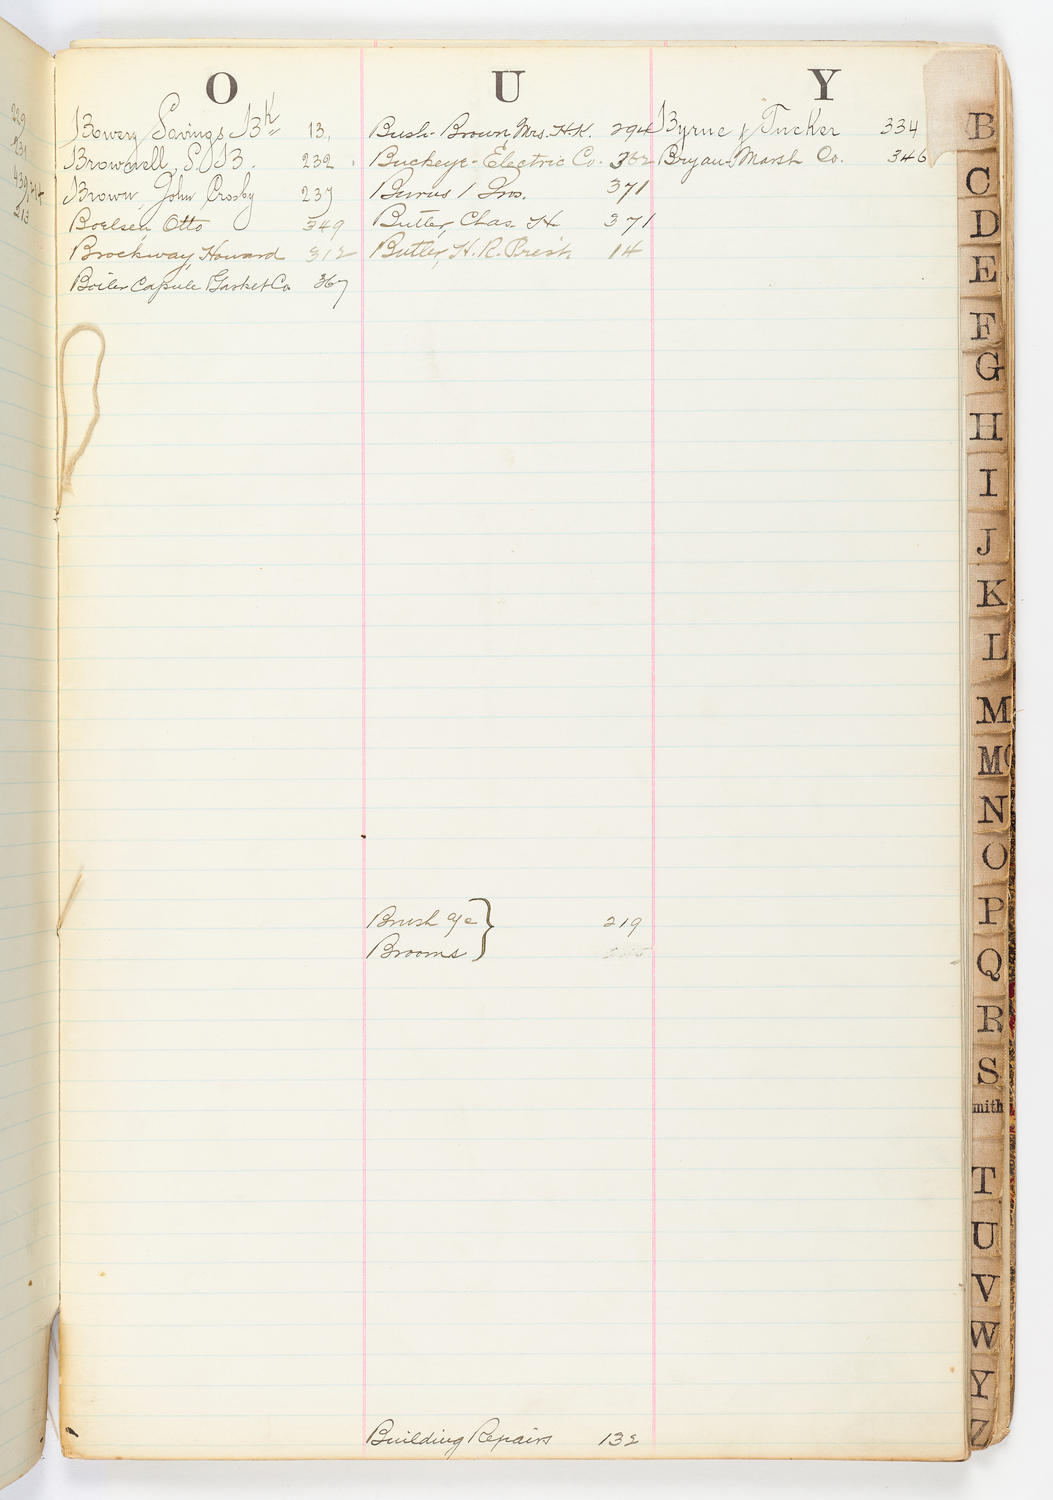 O
Bowery Savings Bk 13,
Brownell, S. B. 232
Brown, John Crosby 237
Boelsen, Otto 349
Brockway, Howard 312
Boiler Capsule Gasket Co 367
U
Bush-Brown, Mrs. H.K. 294
Buckeye-Electric Co. 362
Burns Bros. 371
Butler, Chas. H 371
Butler, H. R. Presh 14
Brush &c 219
Brooms
Building Repairs 132
Y
Byrne & Tucker 334
Bryan-Marsh Co. 346
229
231
439
213
B
C
D
E
F
G
H
I
J
K
L
M
Mc
N
O
P
Q
R
S
mith
T
U
V
W
Y
Z